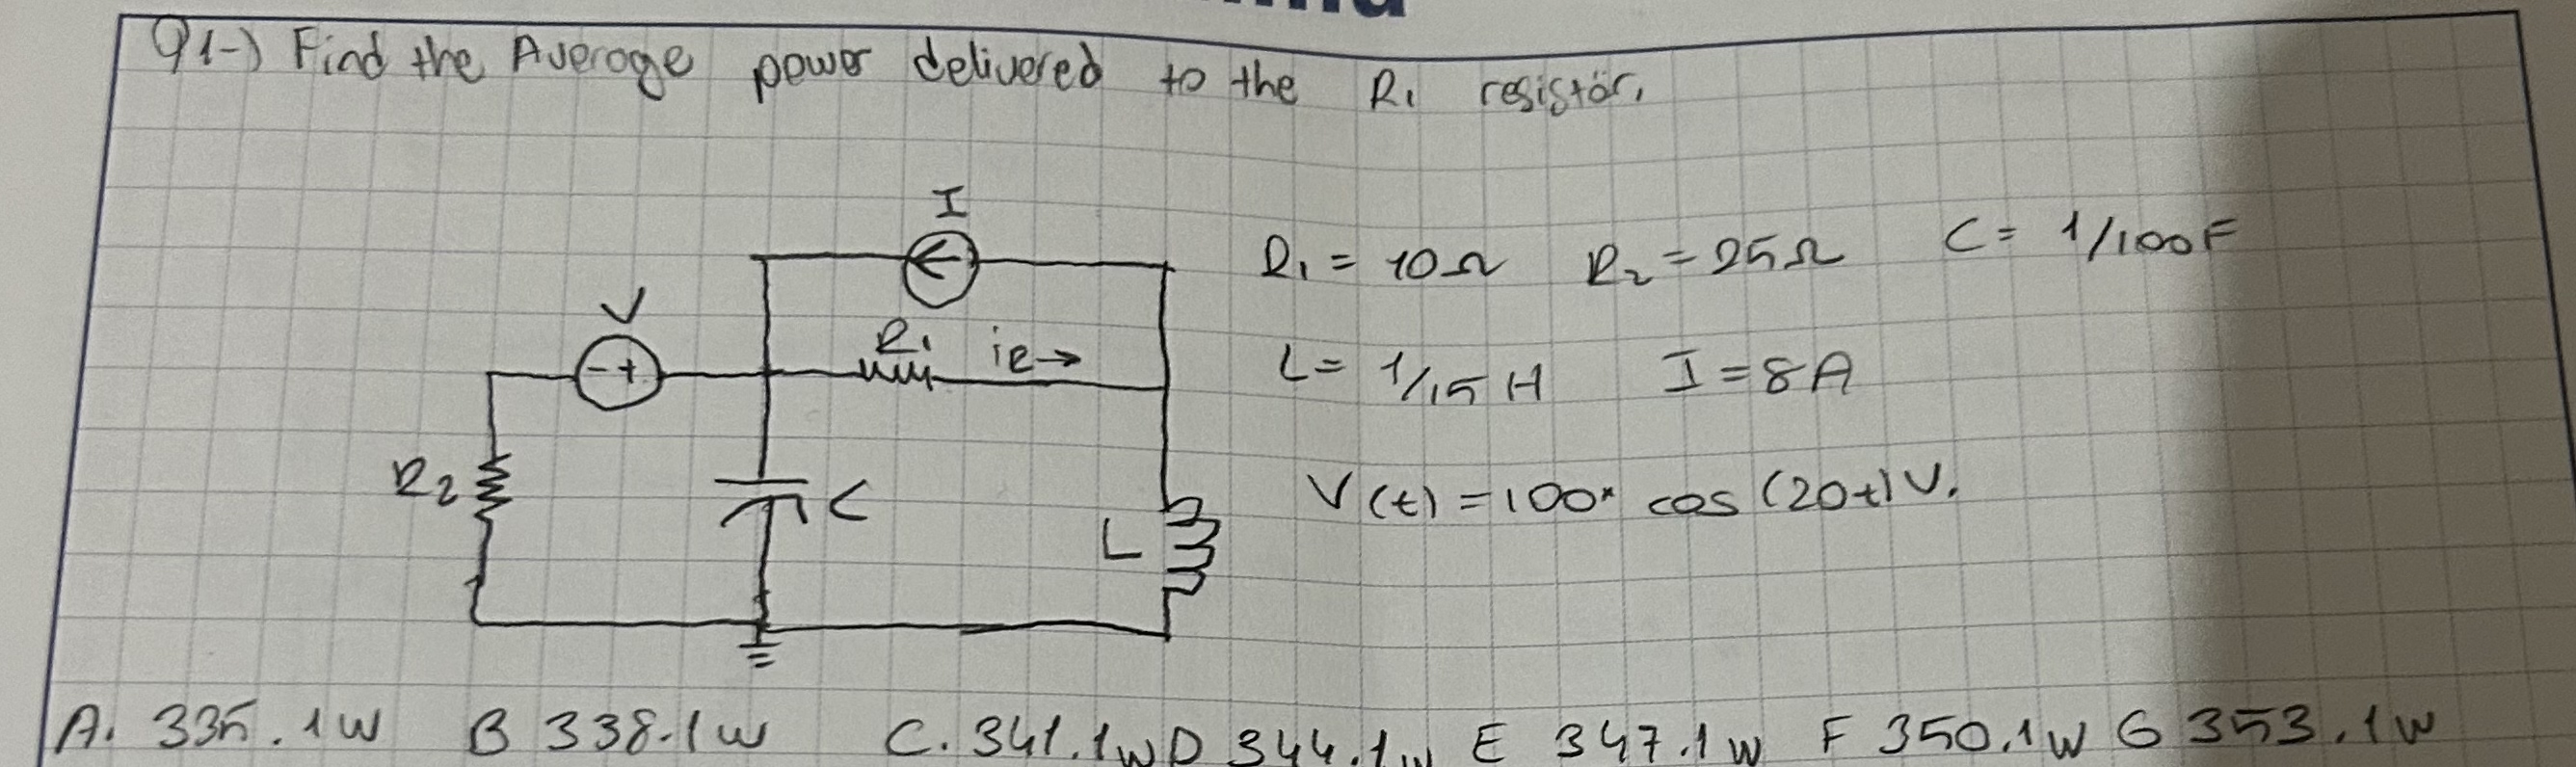 Q1-) Find the Average power delivered to the R1 resistör.
I
R1 = 10Ω R2 = 25Ω C = 1/100F
V
R1 iR→
- +
L = 1/15 H I = 8A
R2
C
V(t) = 100* cos(20t)V.
L
A. 335.1W B 338.1W C. 341.1W D 344.1W E 347.1W F 350.1W G 353.1W